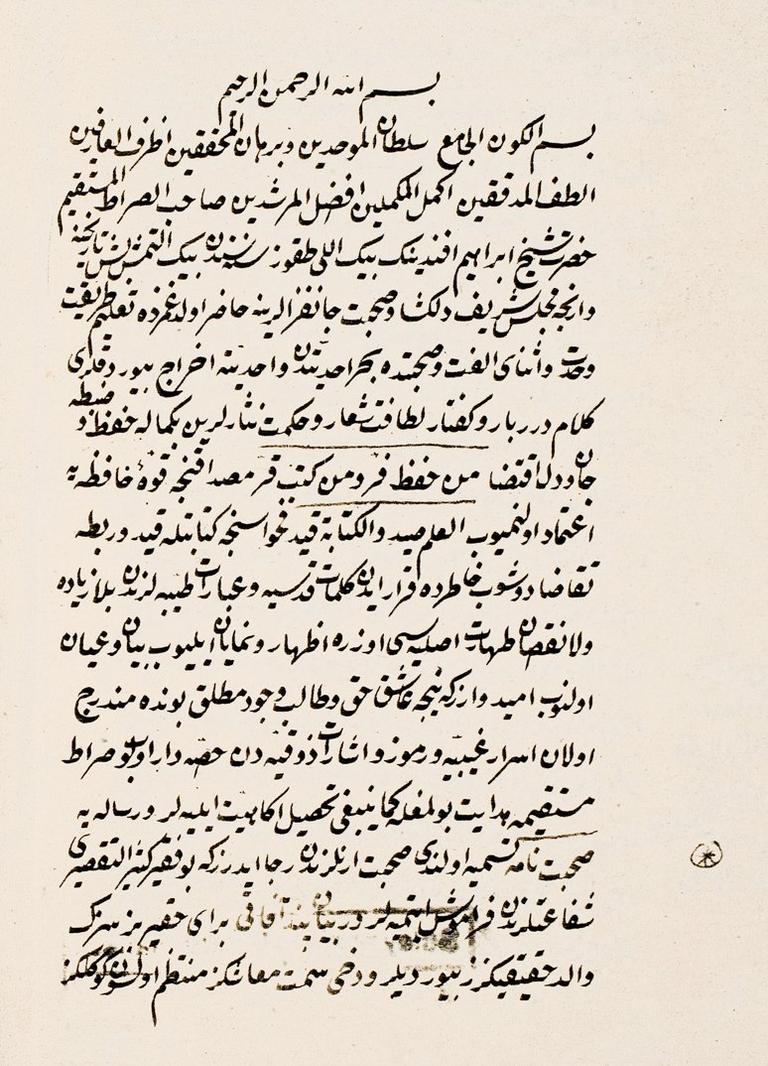 بسم الله الرحمن الرحيم
بسم الكون الجامع سلطان الموحدين وبرهان المحققين اظرف العارفين
الطف المدققين اكمل المكملين افضل المرشدين صاحب الصراط المستقيم
حضرت شيخ ابراهيم افندينك بيك اللى طقوز سنه سندن بيك التمش تاريخنه
وارنجه مجلس شريف دلكشا وصحبت جانفزالرينه حاضر اولدغمزده تعليم طريقت
وحدت واثناى الفت وصحبتده بحر احديتدن واحديته اخراج بيوردقلرى
كلام درربار وكفتار لطافت شعار وحكمت نثارلرين بكماله حفظ و ضبطه
جان ودل اقتضا من حفظ فر ومن كتب قر مصداقنجه قوۀ حافظه يه
اعتماد اولنميوب العلم صيد والكتابة قيد فحواسنجه كتابتله قيد وربطه
تقاضا دوشوب خاطرده قرار ايدن كلمات قدسيه وعبارات طيبه لرندن بلا زياده
ولا نقصان طهارت اصليه سى اوزره اظهار ونمايان ايليوب بيان وعيان
اولنوب اميد وارزكه نيجه عاشق حق وطالب وجود مطلق بونده مندرج
اولان اسرار غيبيه ورموز واشارات ذوقيه دن حصه دار اولوب بو صراط
مستقيمه هدايت بولمغله كما ينبغى تحصيل اكاهيت ايليه لر ورساله يه
صحبت نامه تسميه اولندى صحبت ارنلرندن رجا ايدرزكه بو فقير كثير التقصيرى
شفاعتلرندن فراموش ايتميه لر در بيان پند آفاقى براى حقير بز سزك
والد حقيقيكز بيورديلر ودخى سمت معاشكز منتظم اولسون كوكلكز